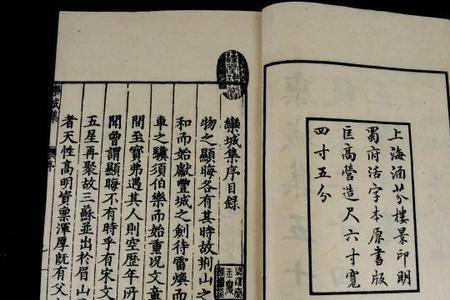 上海涵芬樓景印明
蜀府活字本原書版
匡高營造尺六寸寬
四寸五分
欒城集序目錄
物之顯晦各有其時故荆山之
和而始獻豐城之劍待雷煥而
車之驥須伯樂而始重況文章
間至寶弗遇其人則空歷年所
聞曾謂顯晦不有時乎有宋文
五星再聚故三蘇並出於眉山
者天性高明資稟渾厚既有父
欒城集